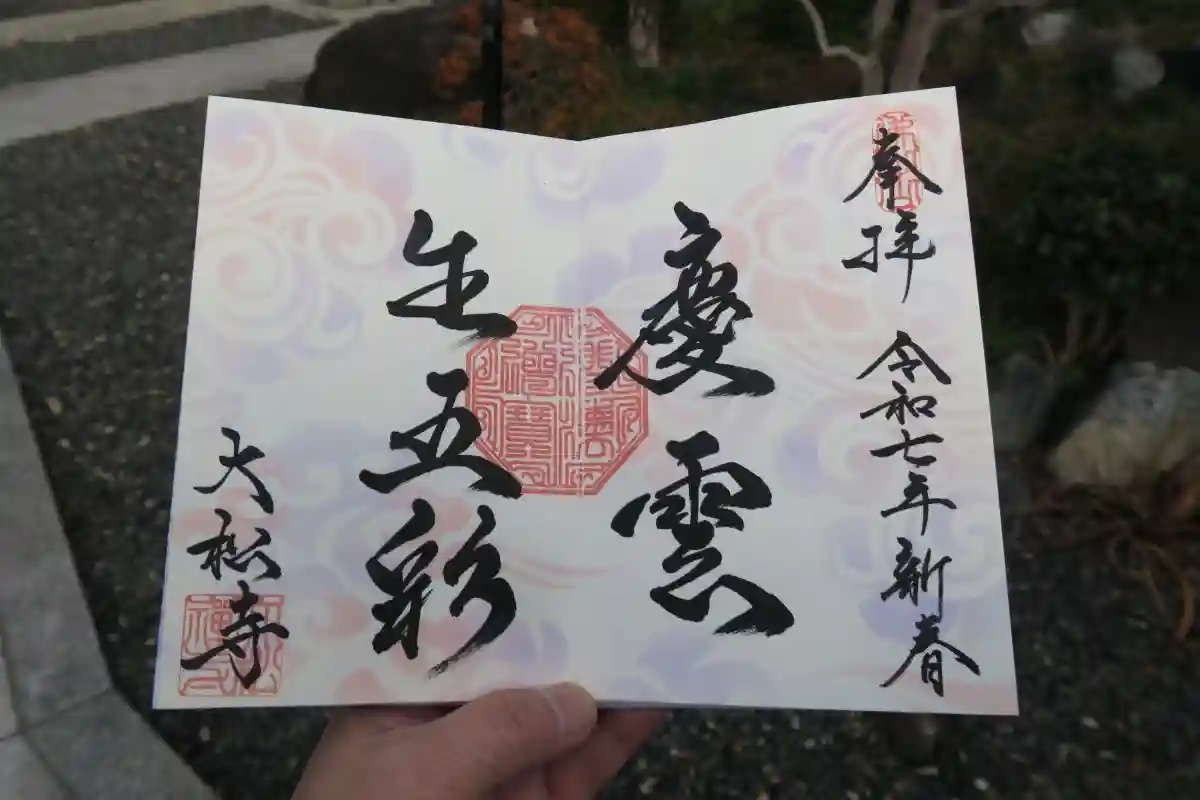 奉拝 令和七年新春
慶雲
生五彩
大松寺